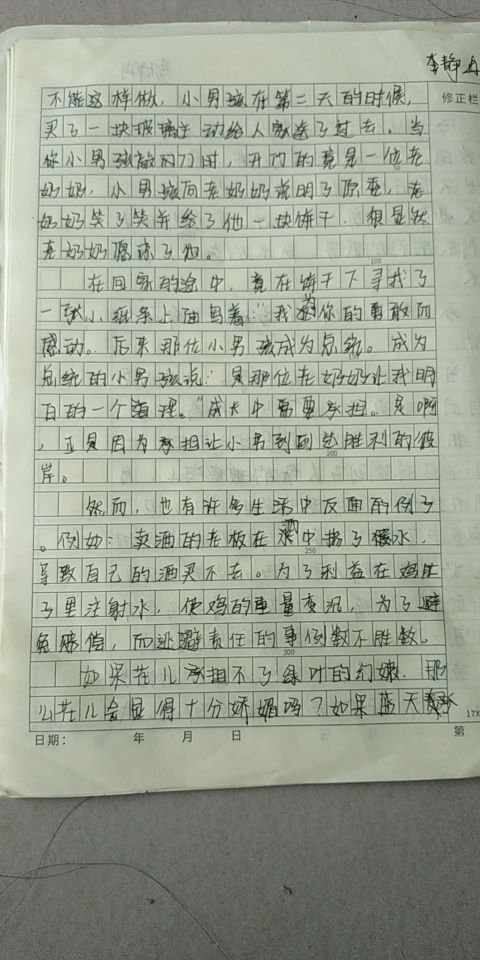 李静
修正栏
不能这样做，小男孩在第二天的时候，
买了一块玻璃主动给人家送了过去。当
你小男孩敲门门时，开门的竟是一位老
奶奶，小男孩向老奶奶说明了原委，老
50
奶奶笑了笑并给了他一块饼干，很显然
老奶奶原谅了他。
100
在回家的途中，竟在饼干下寻找了
一张小纸条上面写着："我为你的勇敢而
感动。后来那位小男孩成为总统。成为
总统的小男孩说："是那位老奶奶让我明
白的一个道理。"成长中需要承担。是啊
，正是因为承担让小男到到达胜利的彼
200
岸。
然而，也有许多生活中反面的例子
。例如：卖酒的老板在酒中掺了水，
250
导致自己的酒买不去。为了利益在鸡
子里注射水，使鸡的重量变沉，为了避
免赔偿，而逃避责任的事例数不胜数。
300
如果花儿承担不了绿叶的幼嫩，那
么花儿会显得十分娇媚吗？如果蓝天
日期： 年 月 日 第
17X